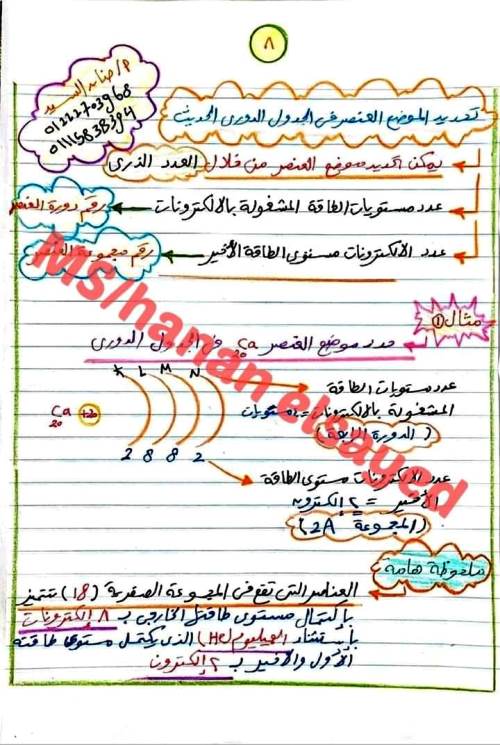 ٨
م/حنان السيد
01222703968
01115838394
تحديد الموضع العنصر فى الجدول الدورى الحديث
يمكن تحديد موضع العنصر من خلال العدد الذرى
عدد مستويات الطاقة المشغولة بالالكترونات ← رقم دورة العنصر
عدد الالكترونات مستوى الطاقة الأخير ← رقم مجموعة العنصر
مثال ①
حدد موضع العنصر ₂₀Ca فى الجدول الدورى
K L M N
₂₀Ca
+20
2 8 8 2
عدد مستويات الطاقة
المشغولة بالالكترونات =
مستويات
(الدورة الرابعة)
عدد الالكترونات مستوى الطاقة
الأخير = ٢ إلكترون
(المجموعة 2A)
ملحوظة هامة
العناصر التى تقع فى المجموعة الصفرية (18) تتميز
بإكتمال مستوى طاقتها الخارجى بـ ٨ إلكترونات
باستثناء الهيليوم (He) الذى يكتمل مستوى طاقته
الأول والأخير بـ ٢ إلكترون
Ms/hanan elsayed